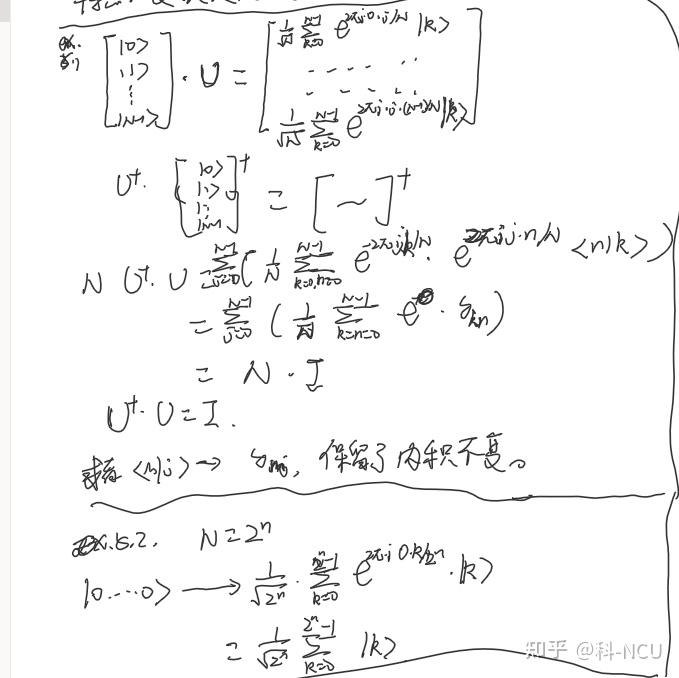 [|0> |1> ⋮ |N-1>] · U = [1/√N Σ_{k=0}^{N-1} e^{2πi0·j/N} |k> ---- ·· ---- ·· 1/√N Σ_{k=0}^{N-1} e^{2πi·j·(N-1)/N} |k>]
U†· [|0> |1> |: |N-1>]† = [~]†
N U†·U = Σ_{j=0}^{N-1} ( 1/N Σ_{k=0,n=0}^{N-1} e^{-2πijk/N} · e^{2πij·n/N} <n|k> )
= Σ_{j=0}^{N-1} ( 1/N Σ_{k=n=0}^{N-1} e^0 · δ_{kn} )
= N · I
U†·U = I.
或者 <n|j> → δ_{nj}, 保留了内积不变。
ex.5.2. N=2^n
|0···0> → 1/√2^n · Σ_{k=0}^{2^n-1} e^{2πi 0·k/2^n} · |k>
= 1/√2^n Σ_{k=0}^{2^n-1} |k>
知乎 @科-NCU